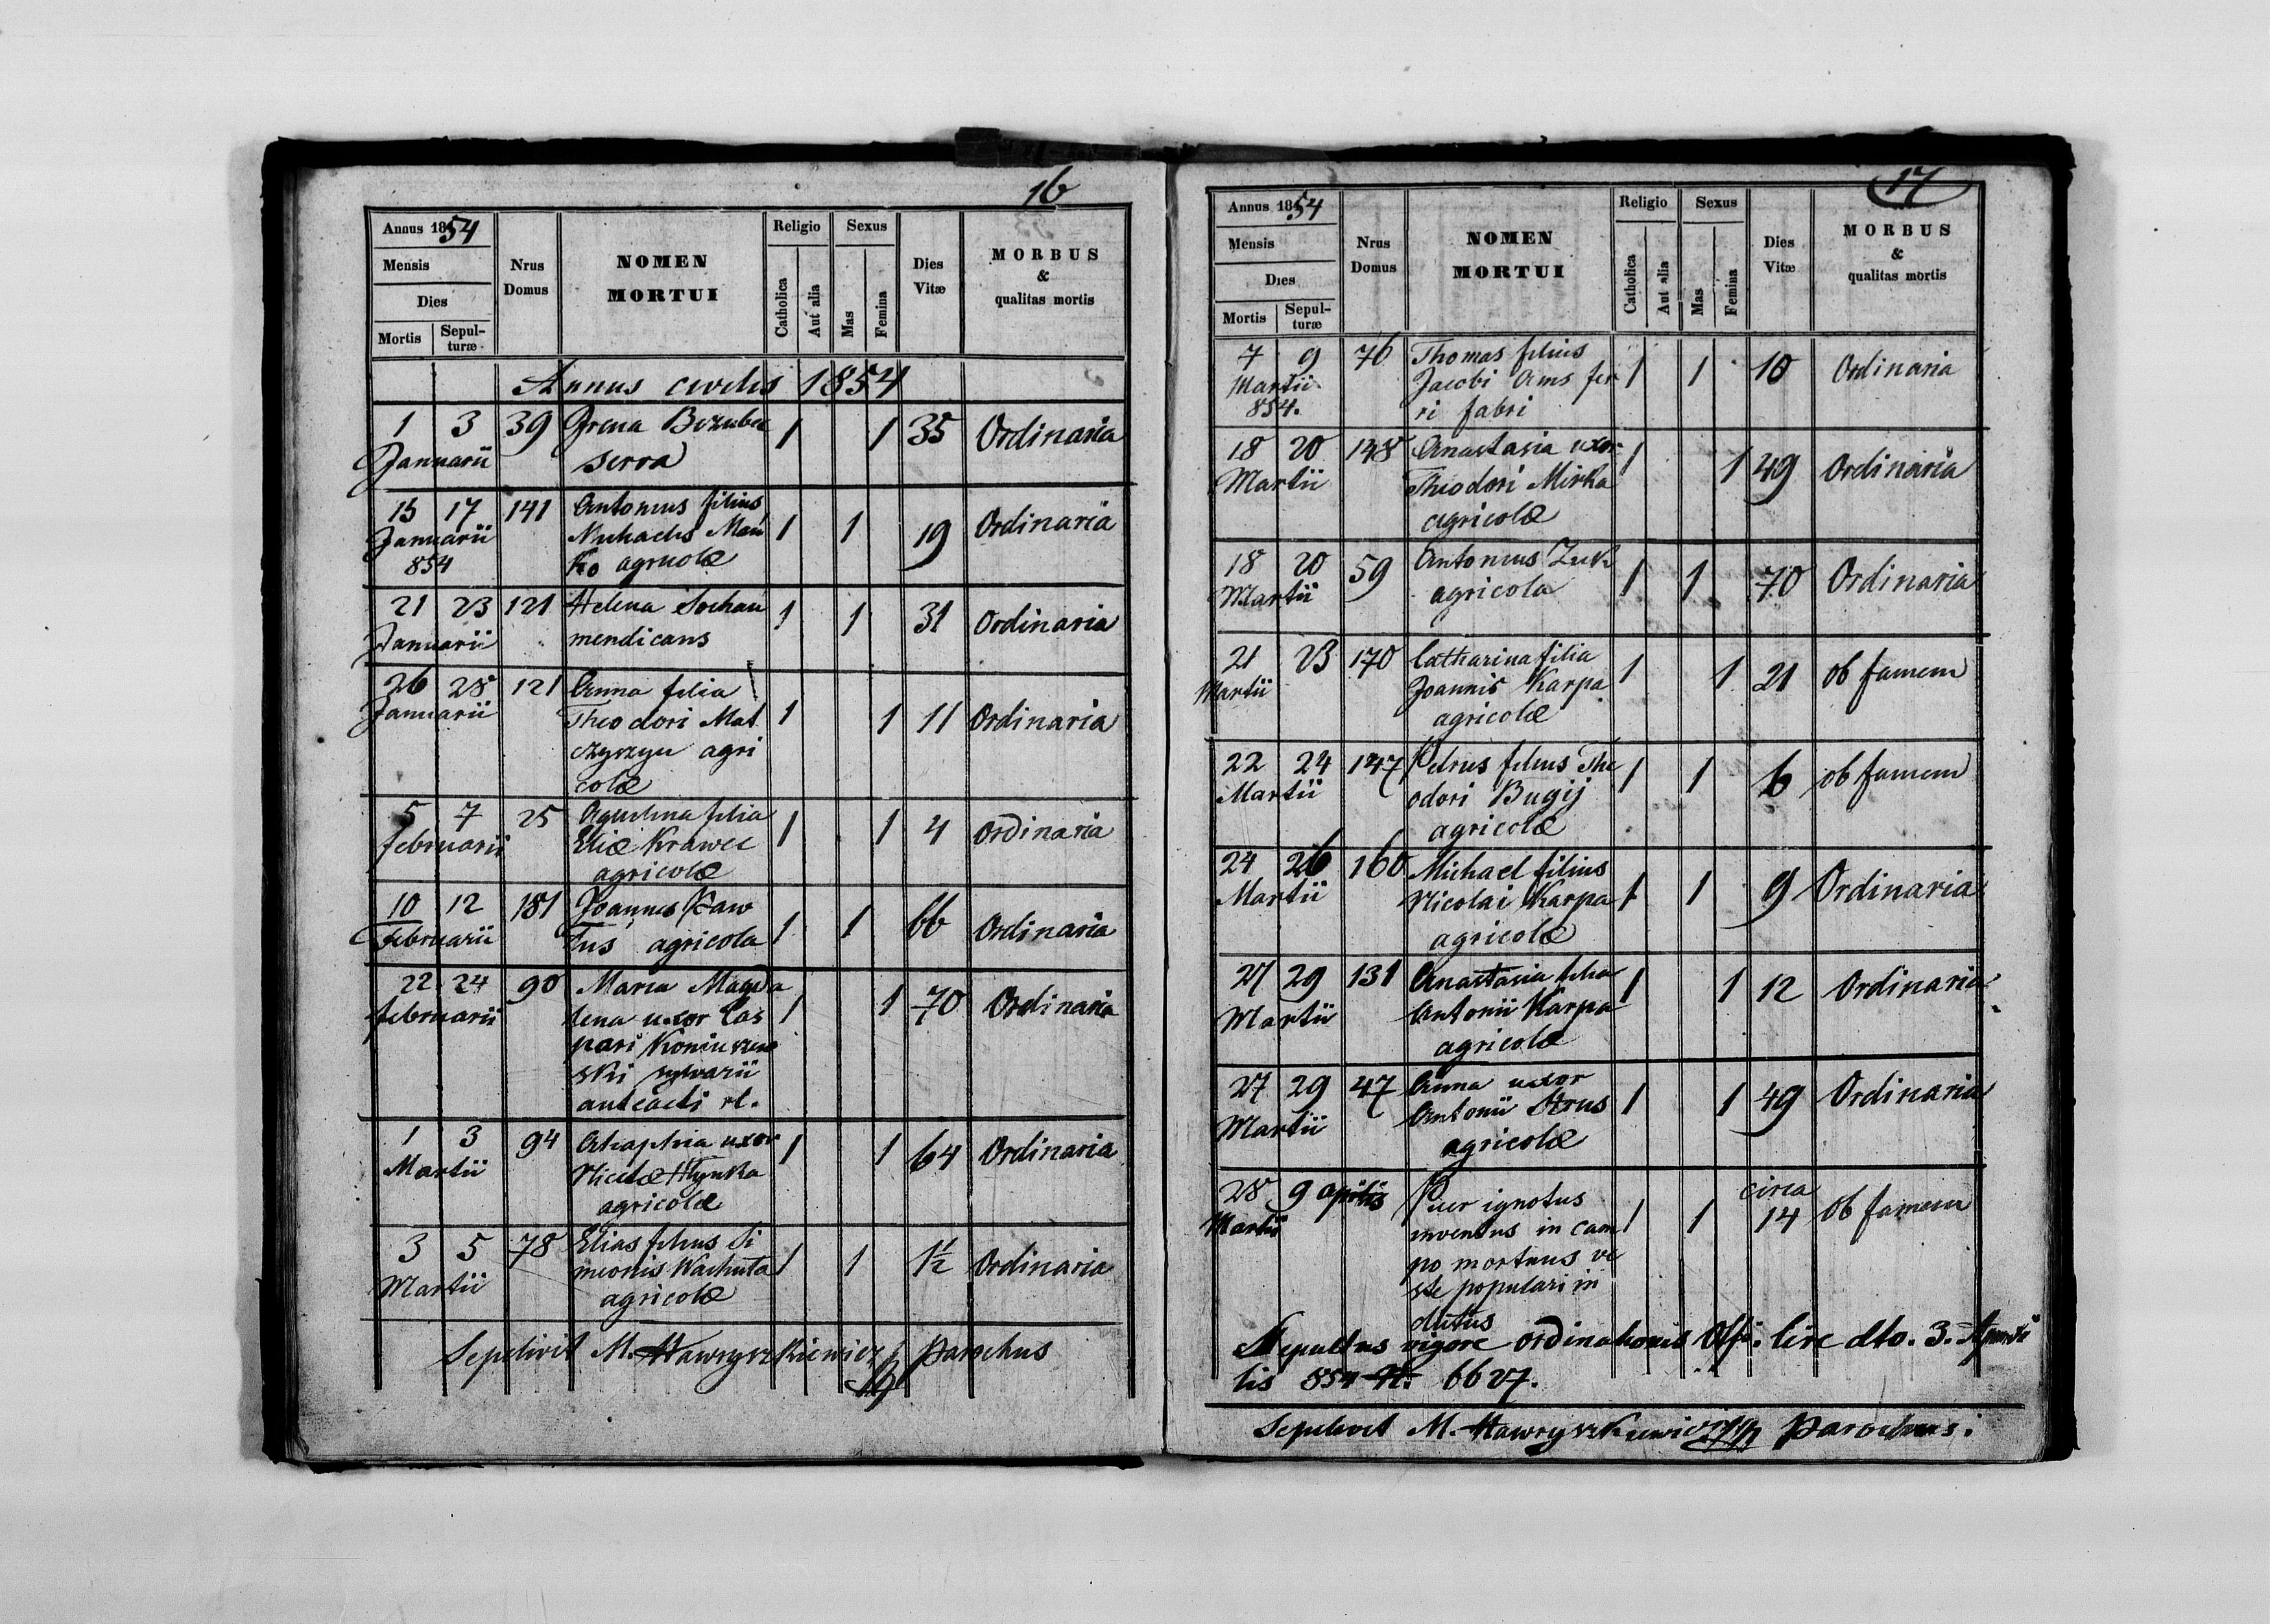 16
Annus 1854
Mensis
Dies
Mortis
Sepul-
turæ
Nrus
Domus
NOMEN
MORTUI
Religio
Catholica
Aut alia
Sexus
Mas
Femina
Dies
Vitæ
MORBUS
&
qualitas mortis
Annus civilis 1854
1 3 39 Irena Bezubec 1 1 35 Ordinaria
Januarii serva
15 17 141 Antonius filius
Januarii Michaelis Man 1 1 19 Ordinaria
854 ko agricolæ
21 23 121 Helena Sochan 1 1 31 Ordinaria
Januarii mendicans
26 28 121 Anna filia
Januarii Theodori Mat 1 1 11 Ordinaria
czyszyn agri
colæ
5 7 25 Aquilina filia
februarii Eliæ Krawec 1 1 4 Ordinaria
agricolæ
10 12 181 Joannes Kaw
februarii Tus agricola 1 1 66 Ordinaria
22 24 90 Maria Magda
februarii lena uxor Cas 1 1 70 Ordinaria
pari Koniuszew
ski sylvarii
anteacti rl.
1 3 94 Ahaphia uxor 1 1 64 Ordinaria
Martii Nicetæ Hlynka
agricolæ
3 5 78 Elias filius Si
Martii meonis Wachuta 1 1 1½ Ordinaria
agricolæ
Sepelivit M. Hawryszkiewicz parochus
17
Annus 1854
Mensis
Dies
Mortis
Sepul-
turæ
Nrus
Domus
NOMEN
MORTUI
Religio
Catholica
Aut alia
Sexus
Mas
Femina
Dies
Vitæ
MORBUS
&
qualitas mortis
7 9 76 Thomas filius
Martii Jacobi Ams fer 1 1 10 Ordinaria
854. ri fabri
18 20 148 Anastasia uxor 1 1 49 Ordinaria
Martii Theodori Mirka
agricolæ
18 20 59 Antonius Zuk 1 1 70 Ordinaria
Martii agricola
21 23 170 Catharina filia 1 1 21 ob famem
Martii Joannis Karpa
agricolæ
22 24 147 Petrus filius The 1 1 6 ob famem
Martii odori Bugij
agricolæ
24 26 160 Michael filius
Martii Nicolai Karpa 1 1 9 Ordinaria
agricolæ
27 29 131 Anastasia filia 1 1 12 Ordinaria
Martii Antonii Karpa
agricolæ
27 29 47 Anna uxor 1 1 49 Ordinaria
Martii Antonii Strus
agricolæ
28 9 aprilis Puer ignotus circa
Martii inventus in cam 1 1 14 ob famem
po mortuus ve
ste populari in
dutus
Sepultus vigore ordinationis Offi. Circ dto. 3.
lis 854 N. 6627.
Sepelivit M. Hawryszkiewicz parochus.